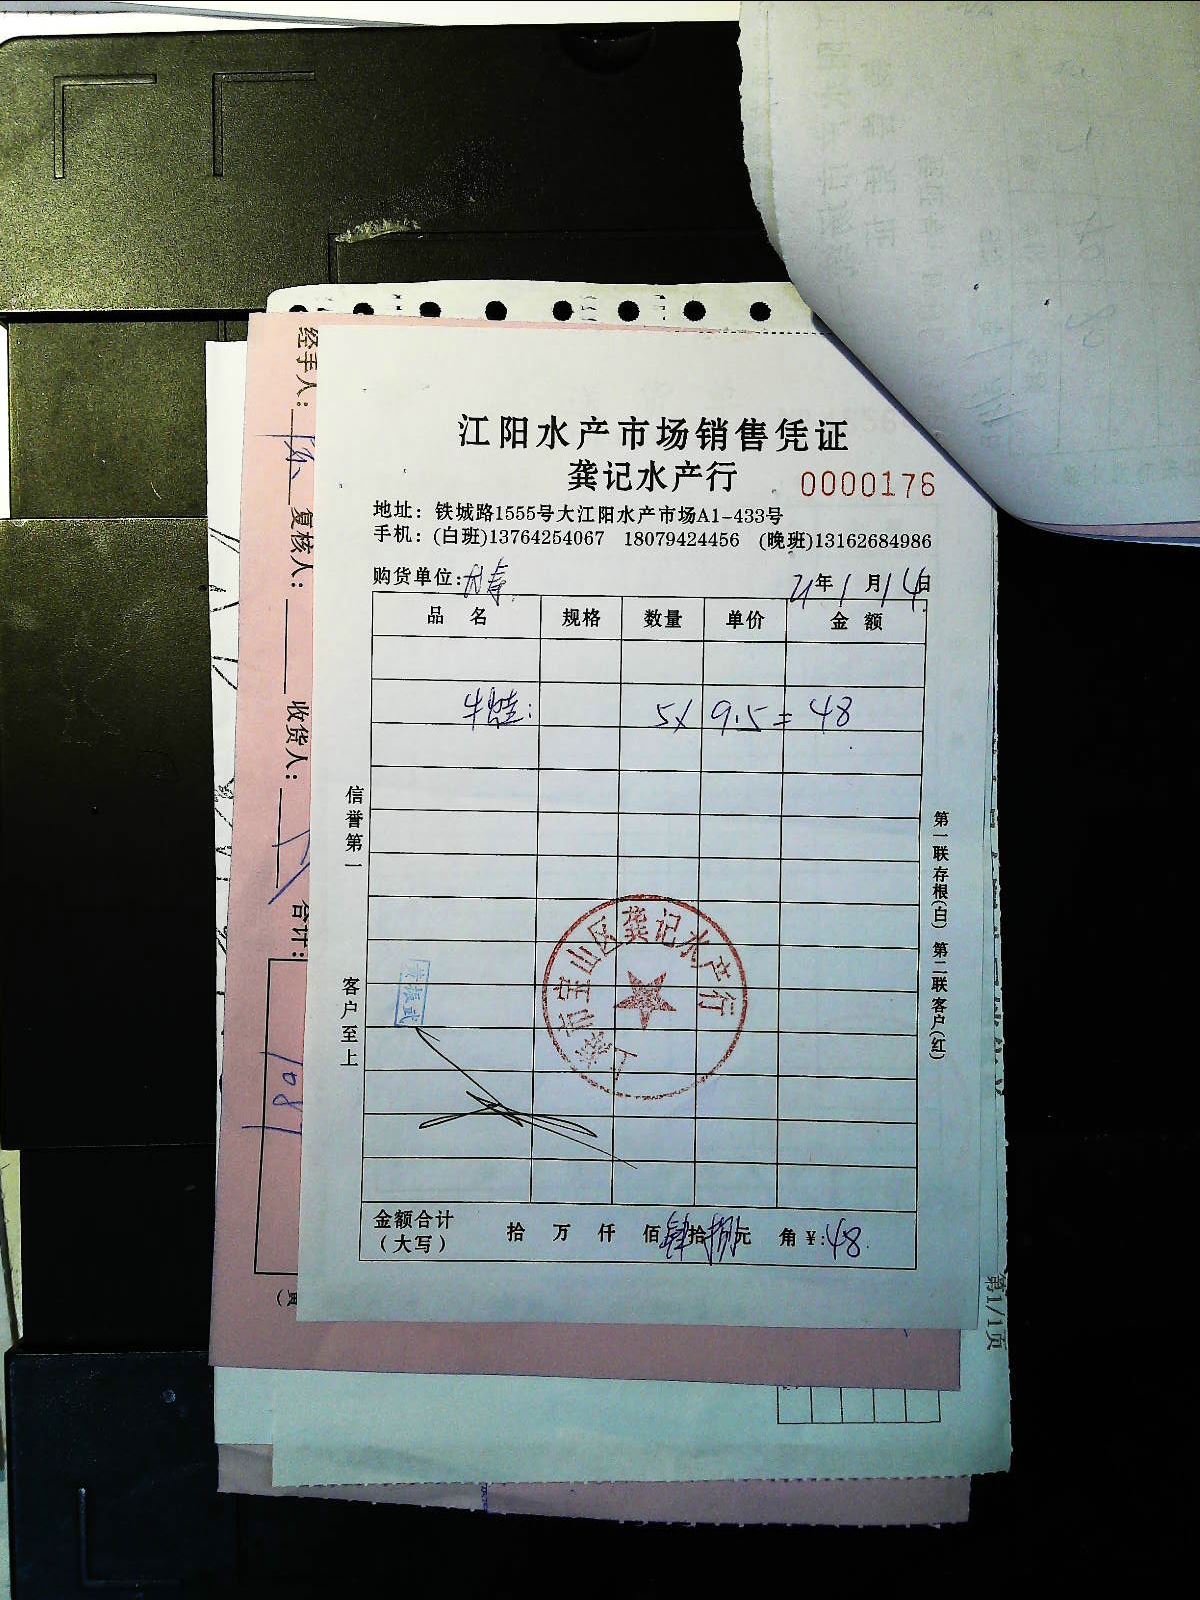 江阳水产市场销售凭证
龚记水产行 0000176
地址：铁城路1555号大江阳水产市场A1-433号
手机：(白班)13764254067 18079424456 (晚班)13162684986
购货单位: 21年1月14日
品名 规格 数量 单价 金额
牛蛙: 5× 9.5= 48
信誉第一
客户至上
第一联存根(白) 第二联客户(红)
上海市宝山区龚记水产行
金额合计 拾 万 仟 佰肆拾捌元 角￥:48.
(大写)
经手人: 复核人: 收货人: 合计:
108
第1/1页